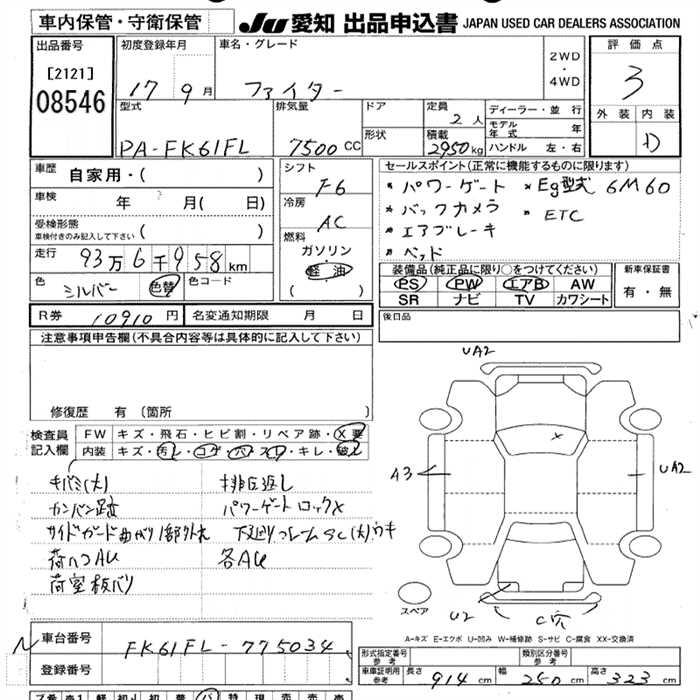 車内保管・守衛保管
JU 愛知 出品申込書 JAPAN USED CAR DEALERS ASSOCIATION
出品番号
[2121]
08546
初度登録年月
17 9月
車名・グレード
ファイター
2WD
・
4WD
評価点
3
外装 内装
D
型式
PA-FK61FL
排気量
7500 CC
ドア
形状
定員
2人
積載
2950kg
ディーラー・並行
モデル年式 年
ハンドル 左・右
車歴
自家用・( )
車検
年 月( 日)
受検形態
車検付きのみ記入して下さい ( )
走行
93万6千958km
色
シルバー 色替
色コード
シフト
F6
冷房
AC
燃料
ガソリン
軽油
( )
セールスポイント(正常に機能するものに限ります)
*パワーゲート *Eg型式 6M60
*バックカメラ *ETC
*エアブレーキ
*ベッド
装備品(純正品に限り○をつけてください)
PS PW エアB AW
SR ナビ TV カワシート
新車保証書
有・無
R券 10910円
名変通知期限 月 日
後日品
注意事項申告欄(不具合内容等は具体的に記入して下さい)
修復歴 有 (箇所 )
検査員記入欄
FW キズ・飛石・ヒビ割・リペア跡・X要
内装 キズ・汚レ・コゲ・穴・スレ・キレ・破レ
キバミ(大) 排圧返し
カンバン跡 パワーゲート ロックX
サイドガード曲がり1部外れ 下廻りフレームSC(大)ウキ
荷ヘコAU 各AU
荷室板バリ
UA2
X
A3
UA2
U2
C穴
スペア
A-キズ E-エクボ U-凹み W-補修跡 S-サビ C-腐食 XX-交換済
車台番号
FK61FL-775034
登録番号
形式指定番号 参考
類別区分番号 参考
車庫証明用 参考
長さ 914cm
幅 250cm
高さ 323cm